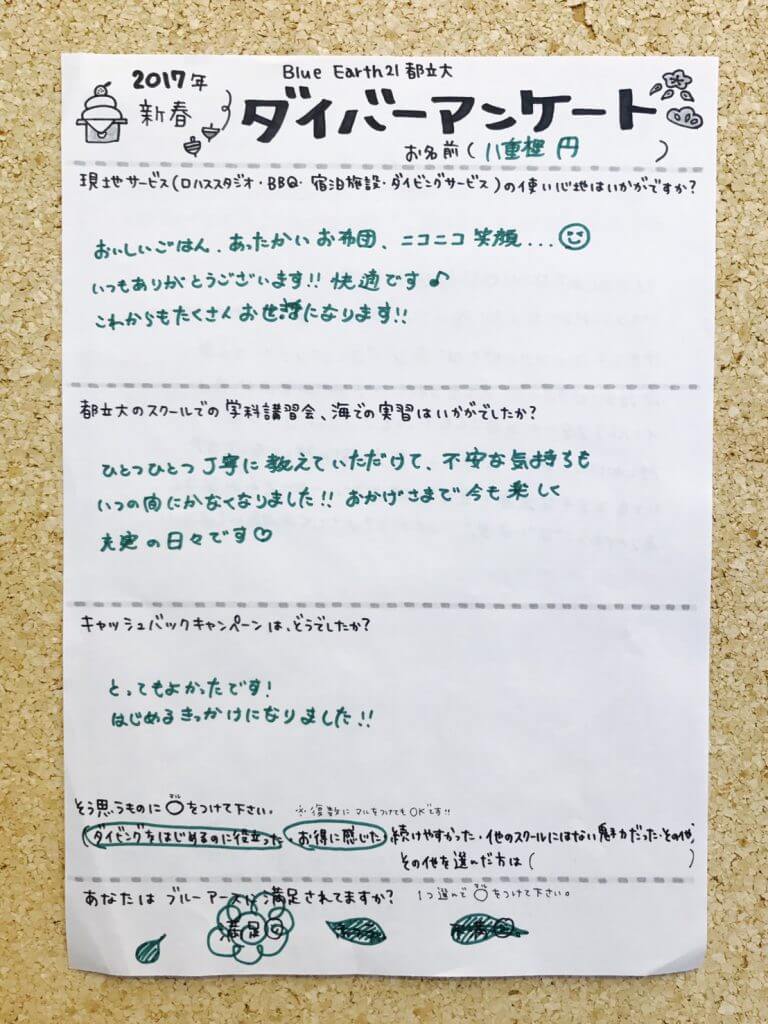 Blue Earth21 都立大
2017年
新春
ダイバーアンケート
お名前(八重樫 円)
現地サービス(ロハススタジオ・BBQ・宿泊施設・ダイビングサービス)の使い心地はいかがですか?
おいしいごはん、あったかいお布団、ニコニコ笑顔...
いつもありがとうございます!! 快適です♪
これからもたくさんお世話になります!!
都立大のスクールでの学科講習会、海での実習はいかがでしたか?
ひとつひとつ丁寧に教えていただけて、不安な気持ちも
いつの間にかなくなりました!! おかげさまで今も楽しく
充実の日々です♡
キャッシュバックキャンペーンは、どうでしたか?
とってもよかったです!
はじめるきっかけになりました!!
そう思うものに○マルをつけて下さい。 ※複数にマルをつけてもOKです!!
ダイビングをはじめるのに役立った・お得に感じた・続けやすかった・他のスクールにはない魅力だった・その他
その他を選んだ方は( )
あなたはブルーアースに満足されてますか? 1つ選んで○マルをつけて下さい。
満足